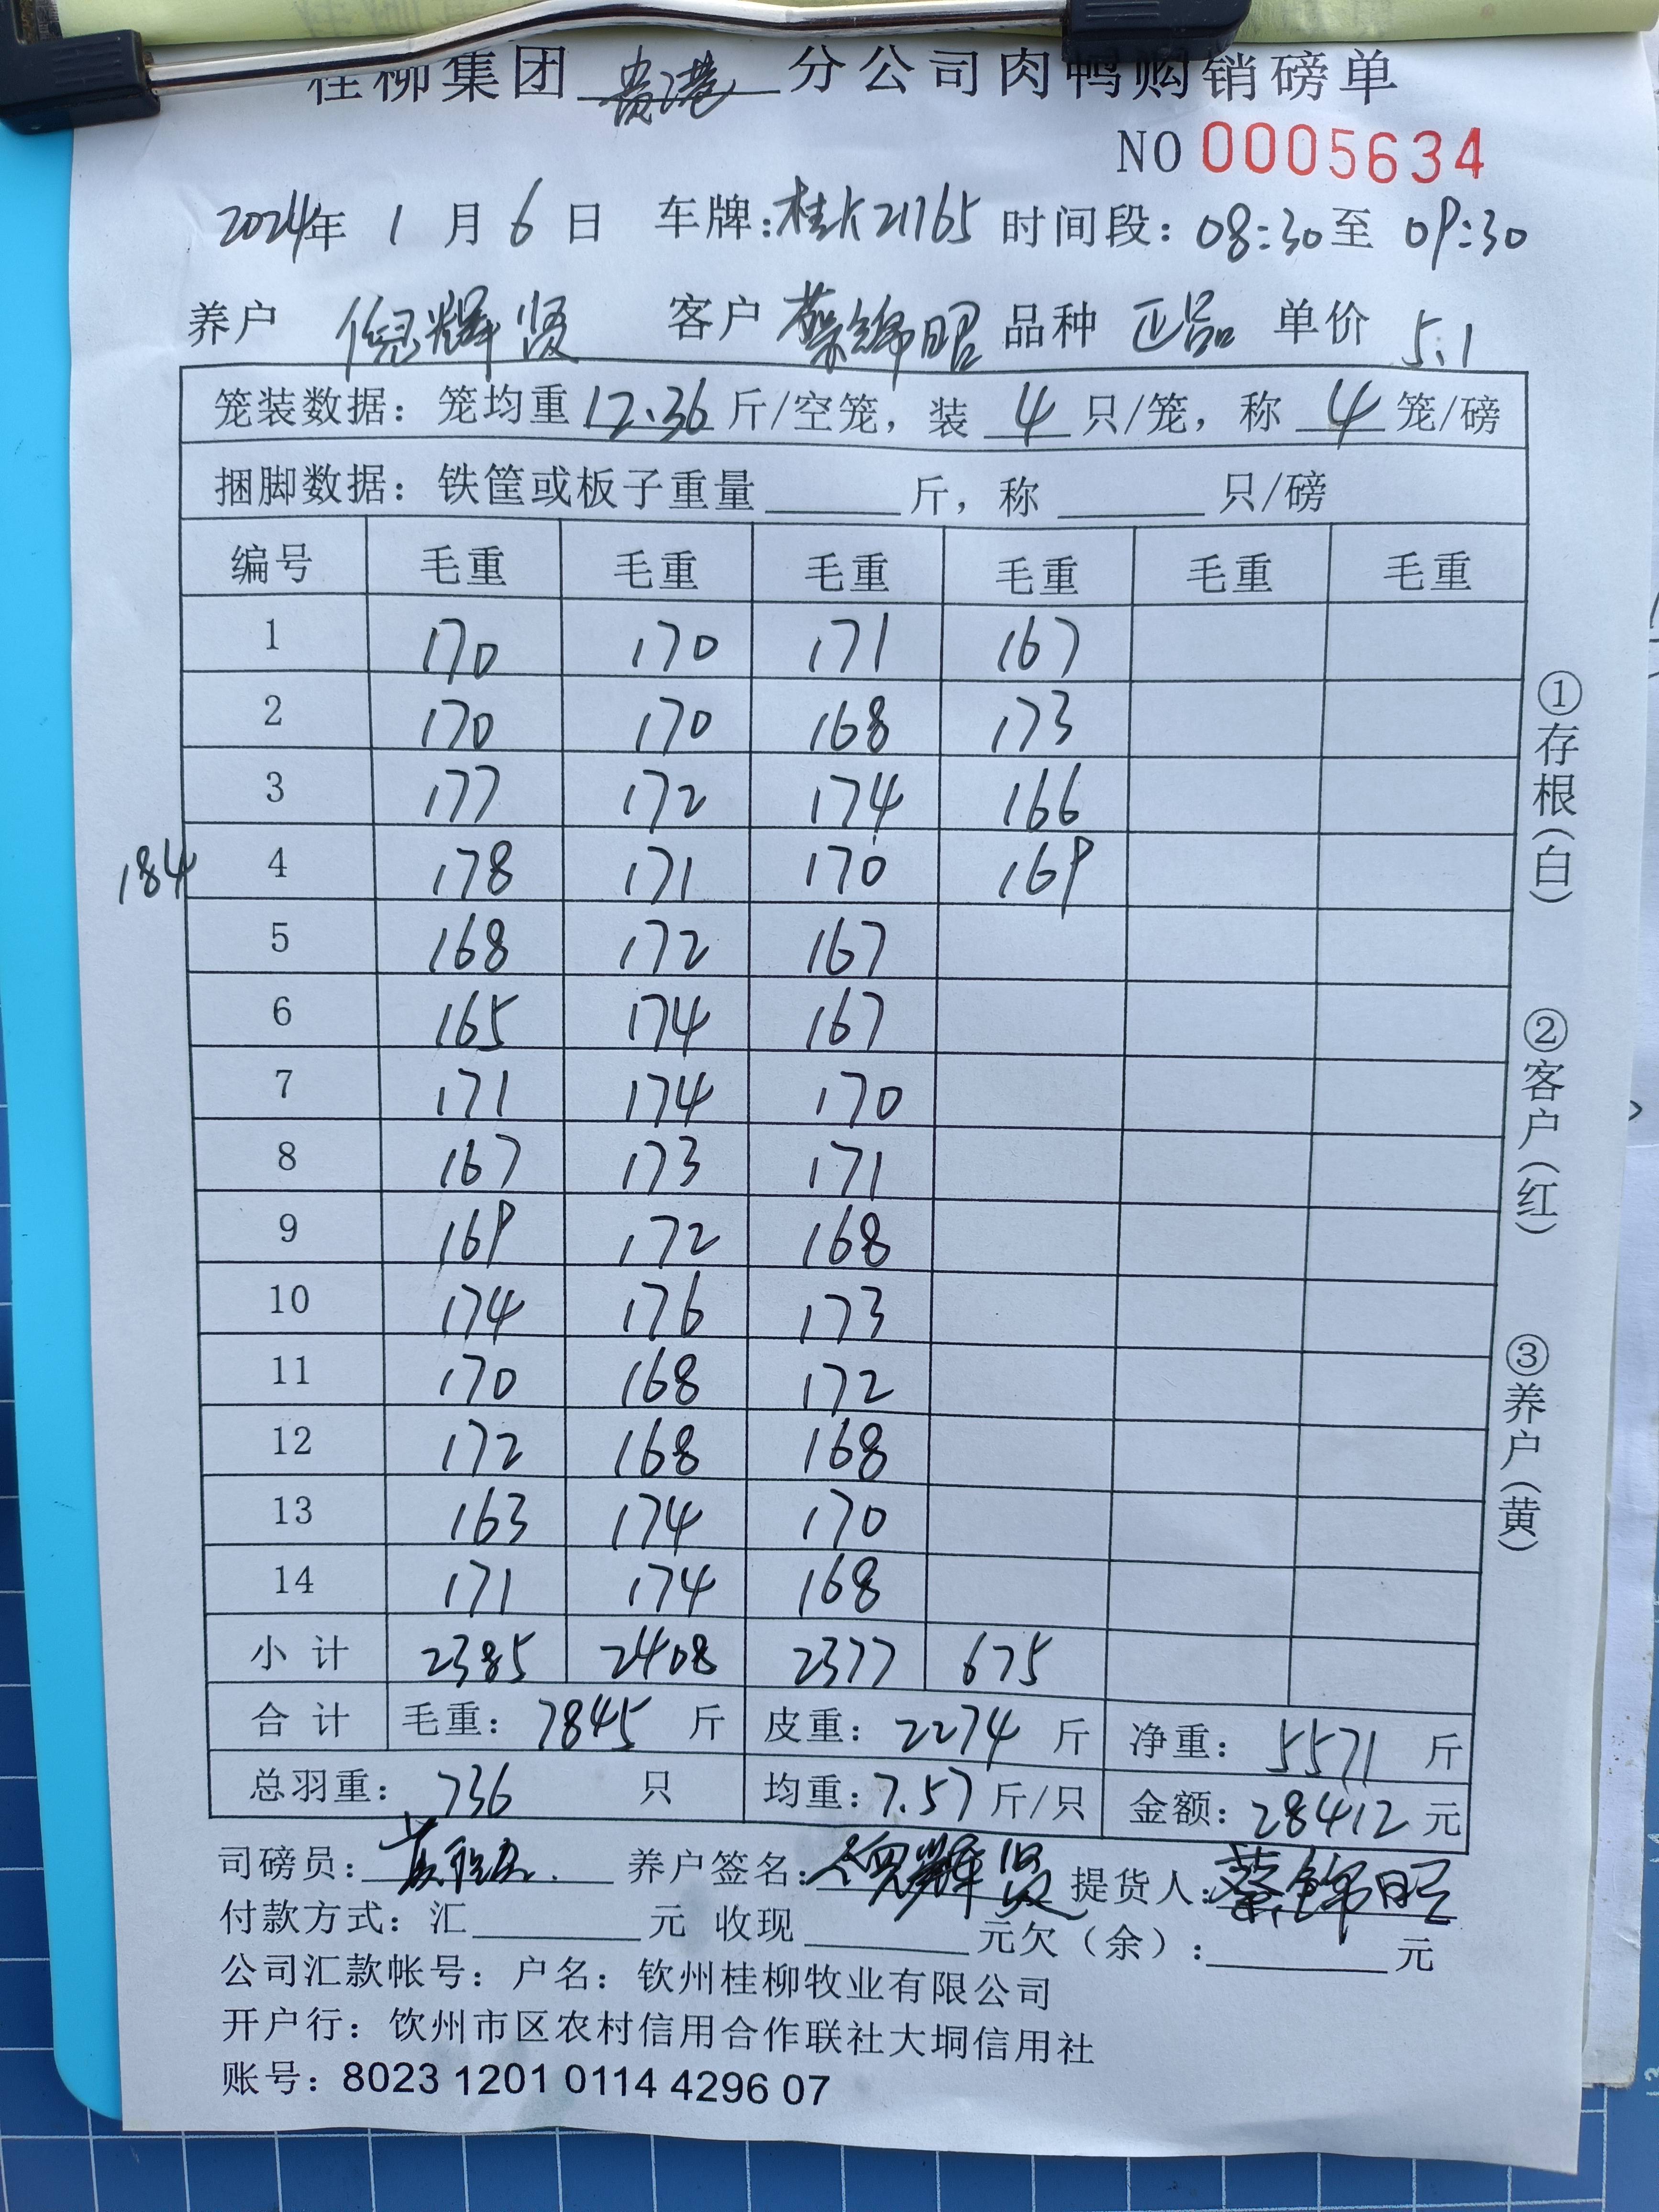 桂柳集团 贵港 分公司肉鸭购销磅单
NO 0005634
2024年 1 月 6 日 车牌:桂K21165 时间段: 08:30至 09:30
养户 倪辉贤 客户 蔡锦昭 品种 正品 单价 5.1
笼装数据: 笼均重 12.36 斤/空笼, 装 4 只/笼, 称 4 笼/磅
捆脚数据: 铁筐或板子重量______斤, 称______只/磅
编号 毛重 毛重 毛重 毛重 毛重 毛重
1 170 170 171 167
2 170 170 168 173
3 177 172 174 166
184 4 178 171 170 169
5 168 172 167
6 165 174 167
7 171 174 170
8 167 173 171
9 169 172 168
10 174 176 173
11 170 168 172
12 172 168 168
13 163 174 170
14 171 174 168
小计 2385 2408 2377 675
合计 毛重: 7845 斤 皮重: 2274 斤 净重: 5571 斤
总羽重: 736 只 均重: 7.57 斤/只 金额: 28412 元
司磅员: 养户签名: 倪辉贤 提货人: 蔡锦昭
付款方式: 汇______元 收现______元欠(余):______元
公司汇款帐号: 户名: 钦州桂柳牧业有限公司
开户行: 钦州市区农村信用合作联社大垌信用社
账号: 8023 1201 0114 4296 07
①存根(白)
②客户(红)
③养户(黄)